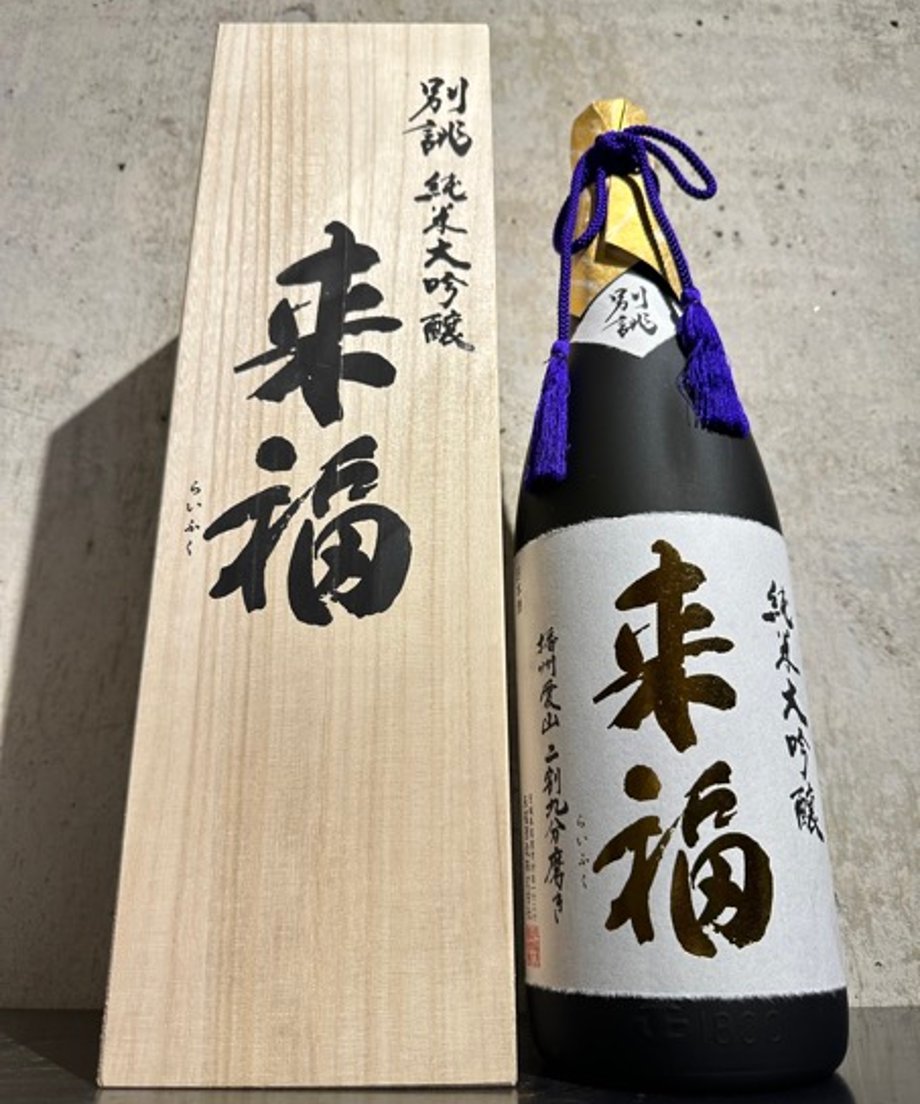 別誂 純米大吟醸
来福
らいふく
別誂
純米大吟醸
来福
らいふく
播州愛山 二割九分磨き
1800